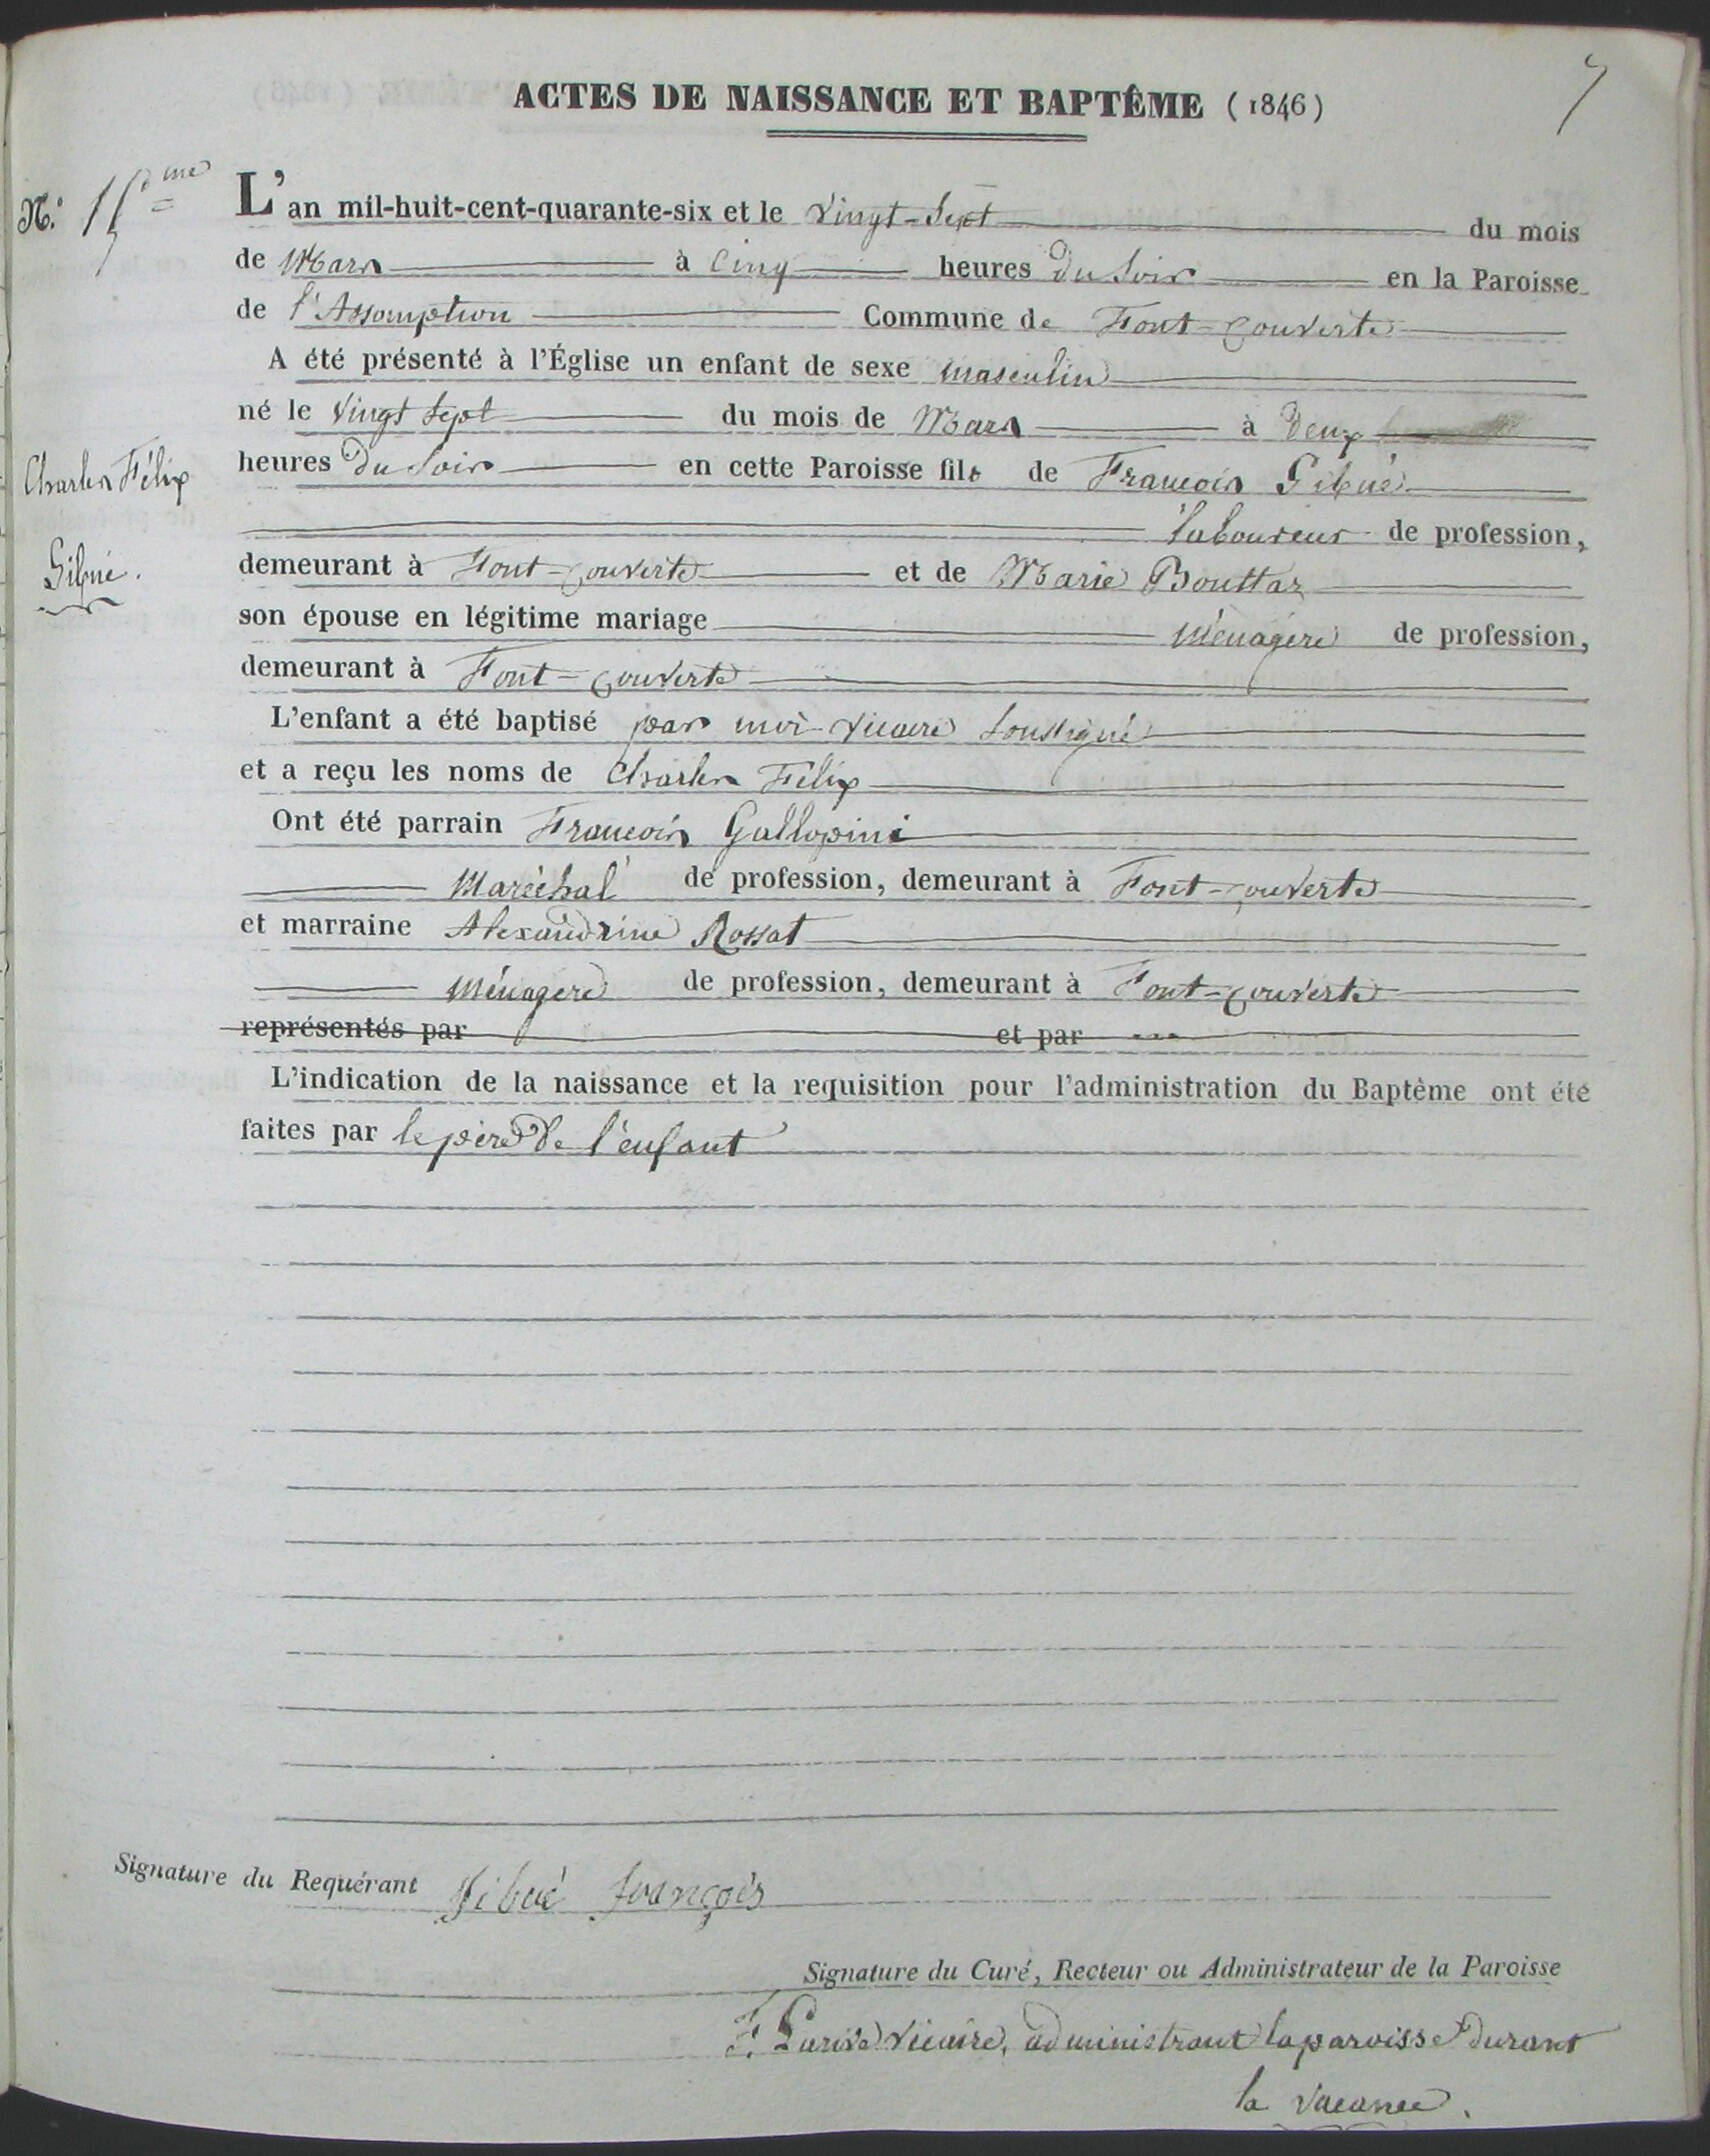 ACTES DE NAISSANCE ET BAPTÊME (1846)
N.º
L'an mil-huit-cent-quarante-six et le Vingt-Sept du mois
de Mars à Cinq heures du Soir en la Paroisse
de l'Assomption Commune de Font-Couverte
A été présenté à l'Église un enfant de sexe masculin
né le Vingt Sept du mois de Mars à Deux
heures du Soir en cette Paroisse fils de François Sibué
laboureur de profession,
Charles Félix
Sibué.
demeurant à Font-Couverte et de Marie Bouttaz
son épouse en légitime mariage Ménagère de profession,
demeurant à Font-Couverte
L'enfant a été baptisé par moi Vicaire Soussigné
et a reçu les noms de Charles Félix
Ont été parrain François Gallopini
Maréchal de profession, demeurant à Font-Couverte
et marraine Alexandrine Rossat
Ménagère de profession, demeurant à Font-Couverte
représentés par et par
L'indication de la naissance et la requisition pour l'administration du Baptême ont été
faites par le père de l'enfant
Signature du Requérant Sibué françois
Signature du Curé, Recteur ou Administrateur de la Paroisse
Vicaire, administrant la paroisse durant
la vacance.